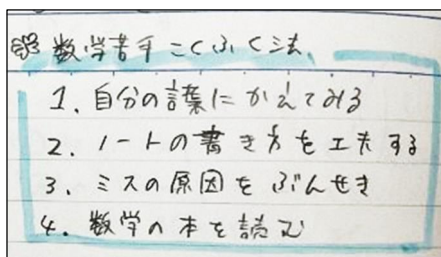 数学苦手こくふく法
1. 自分の言葉にかえてみる
2. ノートの書き方を工夫する
3. ミスの原因をぶんせき
4. 数学の本を読む